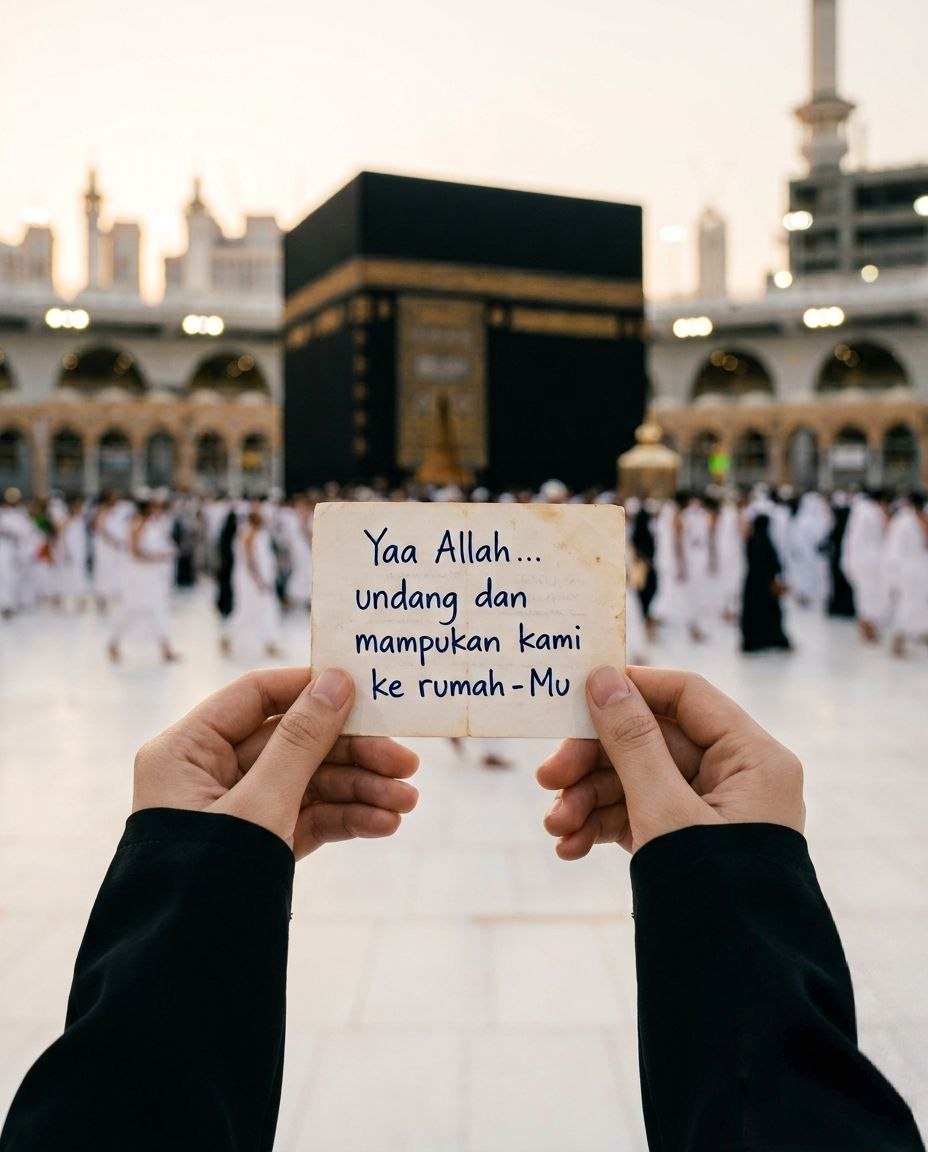 Yaa Allah...
undang dan
mampukan kami
ke rumah-Mu